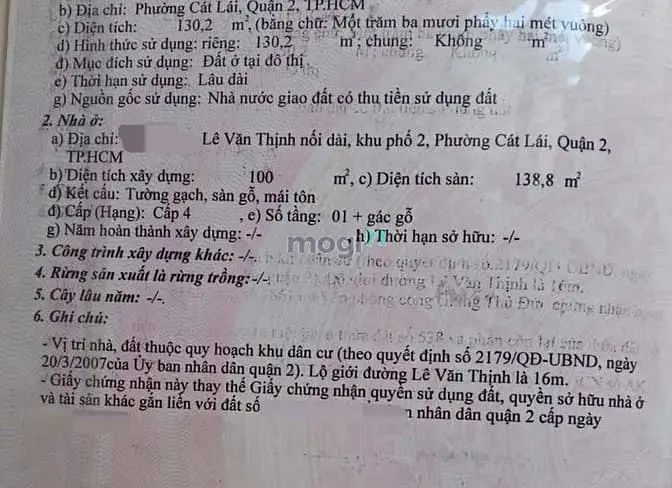 b) Địa chỉ: Phường Cát Lái, Quận 2, TP.HCM
c) Diện tích: 130,2 m², (bằng chữ: Một trăm ba mươi phẩy hai mét vuông)
d) Hình thức sử dụng: riêng: 130,2 m²; chung: Không m²
đ) Mục đích sử dụng: Đất ở tại đô thị
e) Thời hạn sử dụng: Lâu dài
g) Nguồn gốc sử dụng: Nhà nước giao đất có thu tiền sử dụng đất
2. Nhà ở:
a) Địa chỉ: Lê Văn Thịnh nối dài, khu phố 2, Phường Cát Lái, Quận 2,
TP.HCM
b) Diện tích xây dựng: 100 m², c) Diện tích sàn: 138,8 m²
d) Kết cấu: Tường gạch, sàn gỗ, mái tôn
đ) Cấp (Hạng): Cấp 4 , e) Số tầng: 01 + gác gỗ
g) Năm hoàn thành xây dựng: -/- h) Thời hạn sở hữu: -/-
mogi
3. Công trình xây dựng khác: -/-
4. Rừng sản xuất là rừng trồng: -/-
5. Cây lâu năm: -/-.
6. Ghi chú:
- Vị trí nhà, đất thuộc quy hoạch khu dân cư (theo quyết định số 2179/QĐ-UBND, ngày
20/3/2007của Ủy ban nhân dân quận 2). Lộ giới đường Lê Văn Thịnh là 16m.
- Giấy chứng nhận này thay thế Giấy chứng nhận quyền sử dụng đất, quyền sở hữu nhà ở
và tài sản khác gắn liền với đất số nhân dân quận 2 cấp ngày